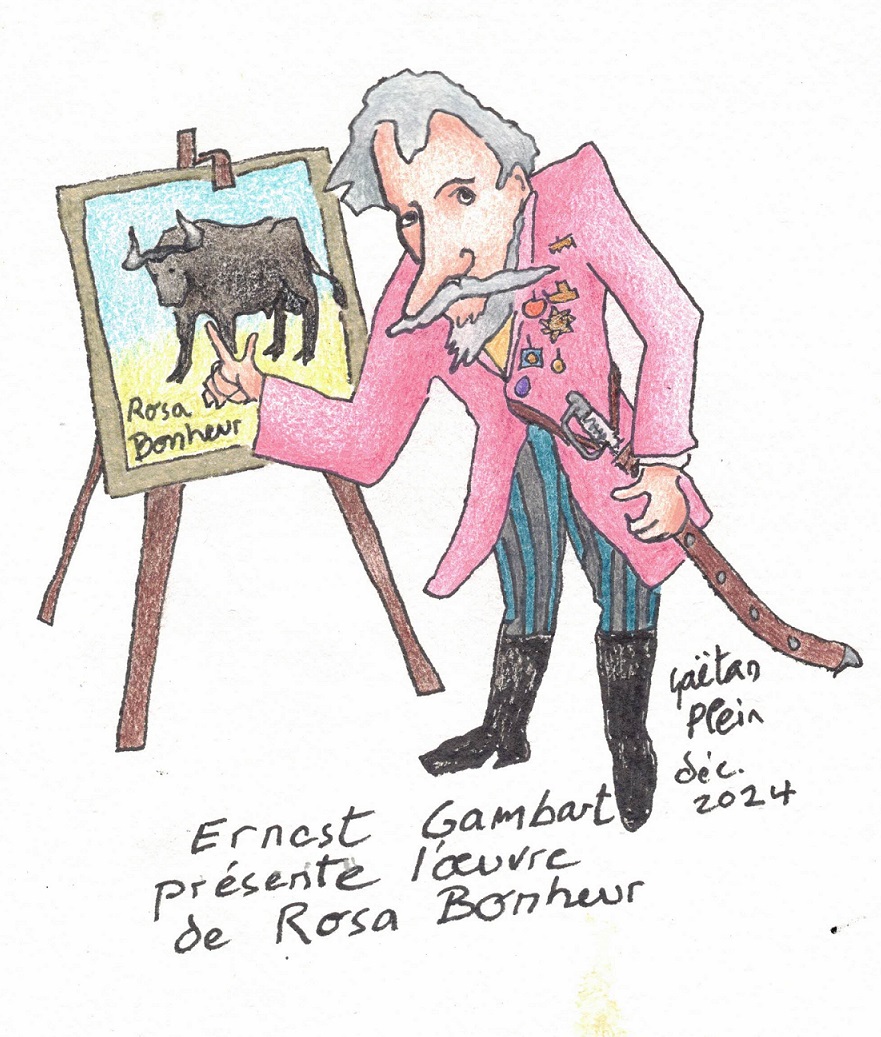 Rosa
Bonheur
Gaëtan
Plein
déc.
2024
Ernest Gambart
présente l'œuvre
de Rosa Bonheur